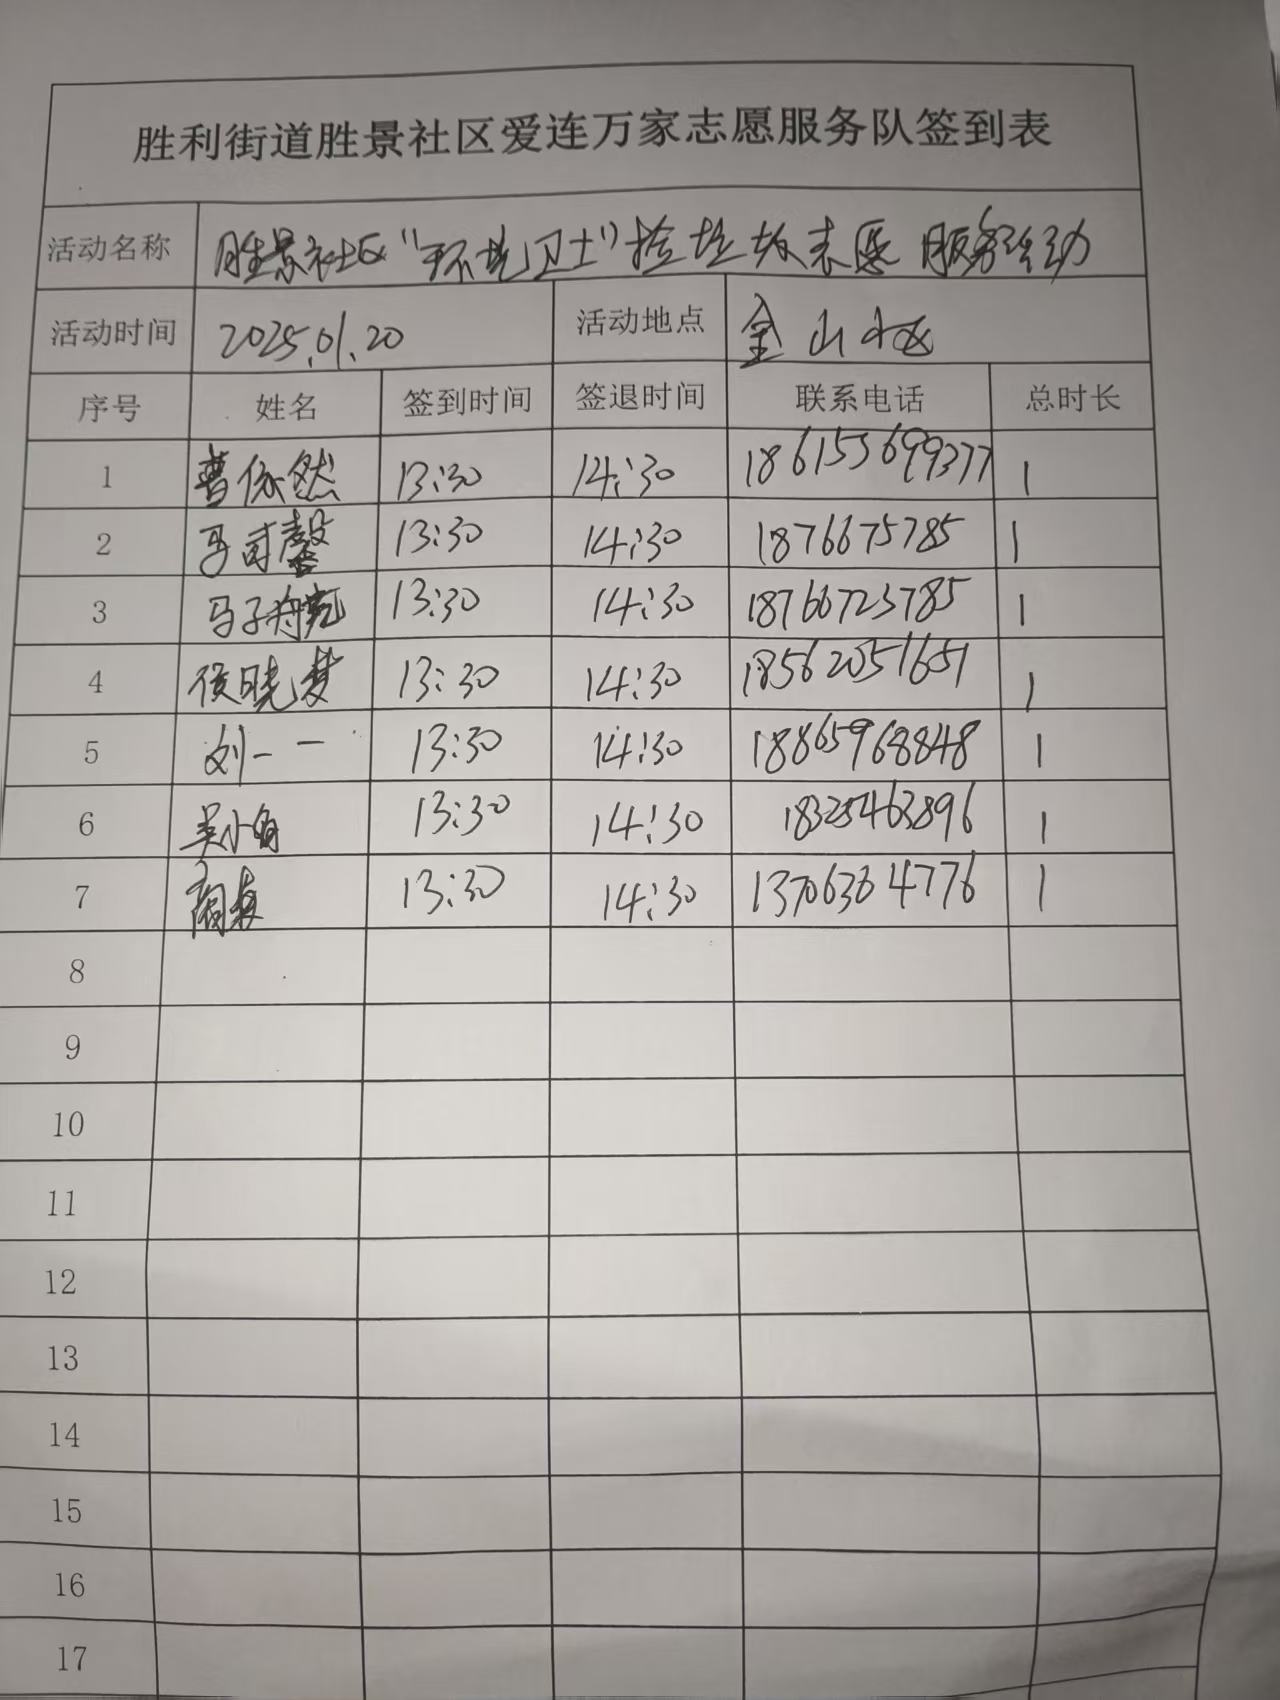 胜利街道胜景社区爱连万家志愿服务队签到表
活动名称 胜景社区“环境卫士”捡垃圾志愿服务活动
活动时间 2025.01.20 活动地点 金山小区
序号 姓名 签到时间 签退时间 联系电话 总时长
1 曹依然 13:30 14:30 186153699377 1
2 马可馨 13:30 14:30 1876675785 1
3 马子舟 13:30 14:30 18766723785 1
4 侯晓梦 13:30 14:30 18562051651 1
5 刘一一 13:30 14:30 18865968848 1
6 吴小自 13:30 14:30 18325463896 1
7 13:30 14:30 13706364776 1
8
9
10
11
12
13
14
15
16
17